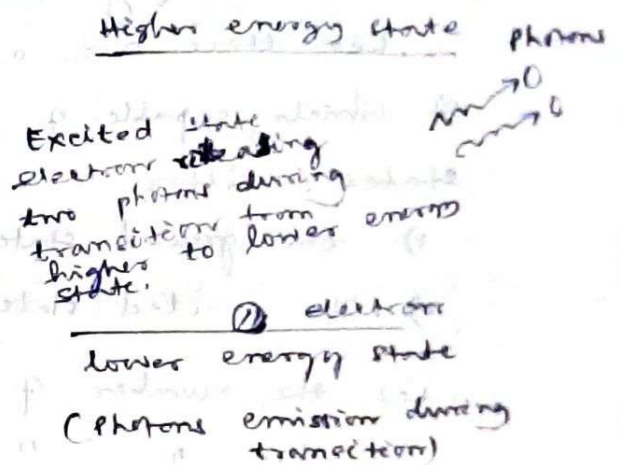 Higher energy state
Photons
Excited state
electron releasing
two photons during
transition from
higher to lower energy
state.
electron
lower energy state
(Photons emission during
transition)